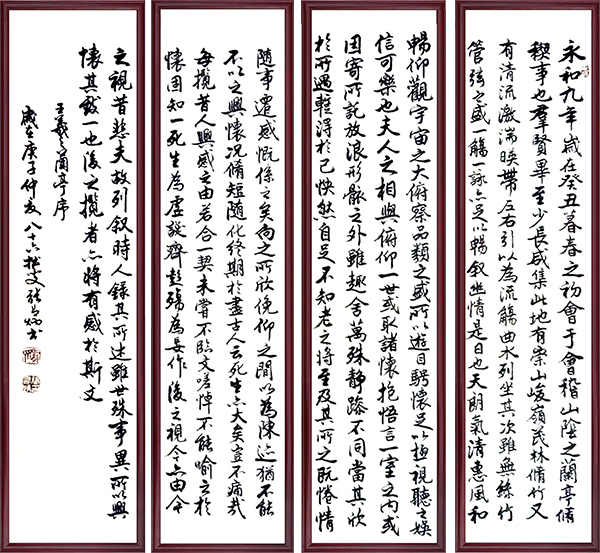 永和九年歲在癸丑暮春之初會于會稽山陰之蘭亭脩
禊事也群賢畢至少長咸集此地有崇山峻嶺茂林脩竹又
有清流激湍暎帶左右引以為流觴曲水列坐其次雖無絲竹
管弦之盛一觴一詠亦足以暢叙幽情是日也天朗氣清惠風和
暢仰觀宇宙之大俯察品類之盛所以遊目騁懷足以極視聽之娛
信可樂也夫人之相與俯仰一世或取諸懷抱悟言一室之內或
因寄所託放浪形骸之外雖趣舍萬殊靜躁不同當其欣
於所遇暫得於己怏然自足不知老之將至及其所之既惓情
隨事遷感慨係之矣向之所欣俛仰之間以為陳迹猶不能
不以之興懷況脩短隨化終期於盡古人云死生亦大矣豈不痛哉
每攬昔人興感之由若合一契未嘗不臨文嗟悼不能喻之於
懷固知一死生為虛誕齊彭殤為妄作後之視今亦由今
之視昔悲夫故列叙時人錄其所述雖世殊事異所以興
懷其致一也後之攬者亦將有感於斯文
王羲之蘭亭序
歲在庚子仲夏八十六拙叟張炳书